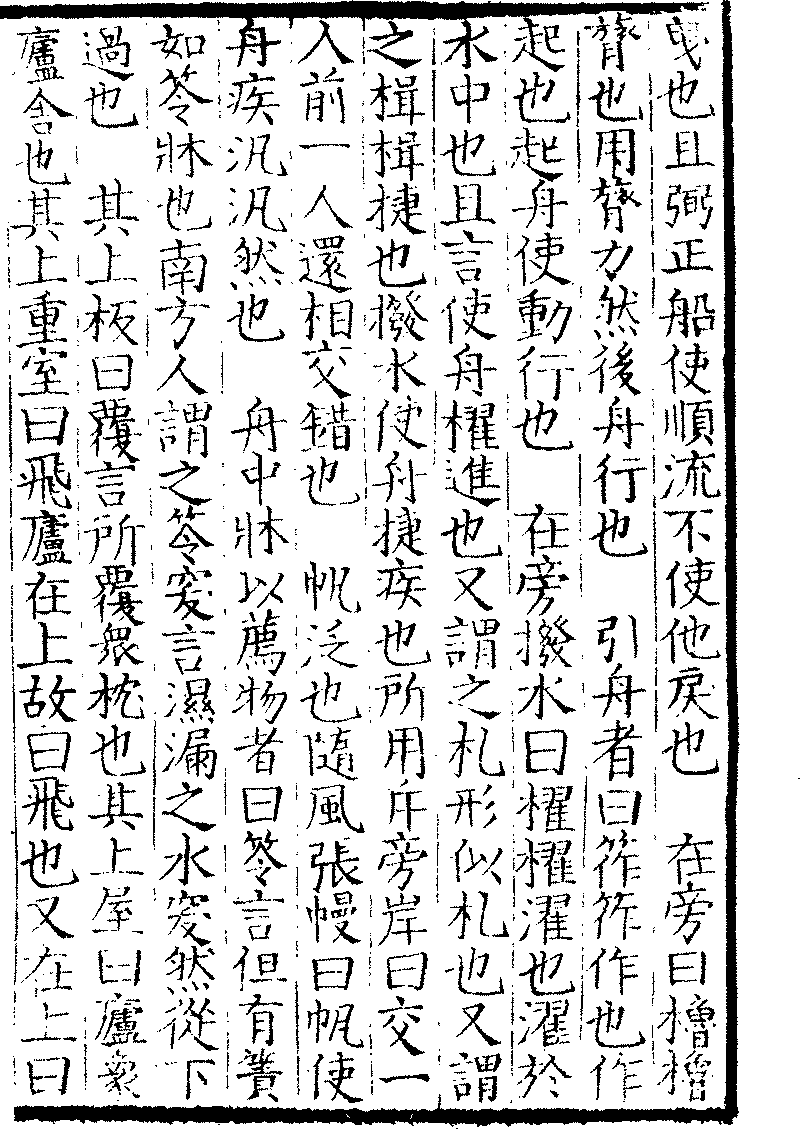 曳也且弼正船使順流不使他戾也　在旁曰櫓櫓
膂也用膂力然後舟行也　引舟者曰筰筰作也作
起也起舟使動行也　在旁撥水曰櫂櫂濯也濯於
水中也且言使舟櫂進也又謂之札形似札也又謂
之楫楫捷也撥水使舟捷疾也所用斥旁岸曰交一
人前一人還相交錯也　帆泛也隨風張幔曰帆使
舟疾汎汎然也　舟中牀以薦物者曰笭言但有簀
如笭牀也南方人謂之笭突言濕漏之水突然從下
過也　其上板曰覆言所覆衆枕也其上屋曰廬象
廬舍也其上重室曰飛廬在上故曰飛也又在上曰